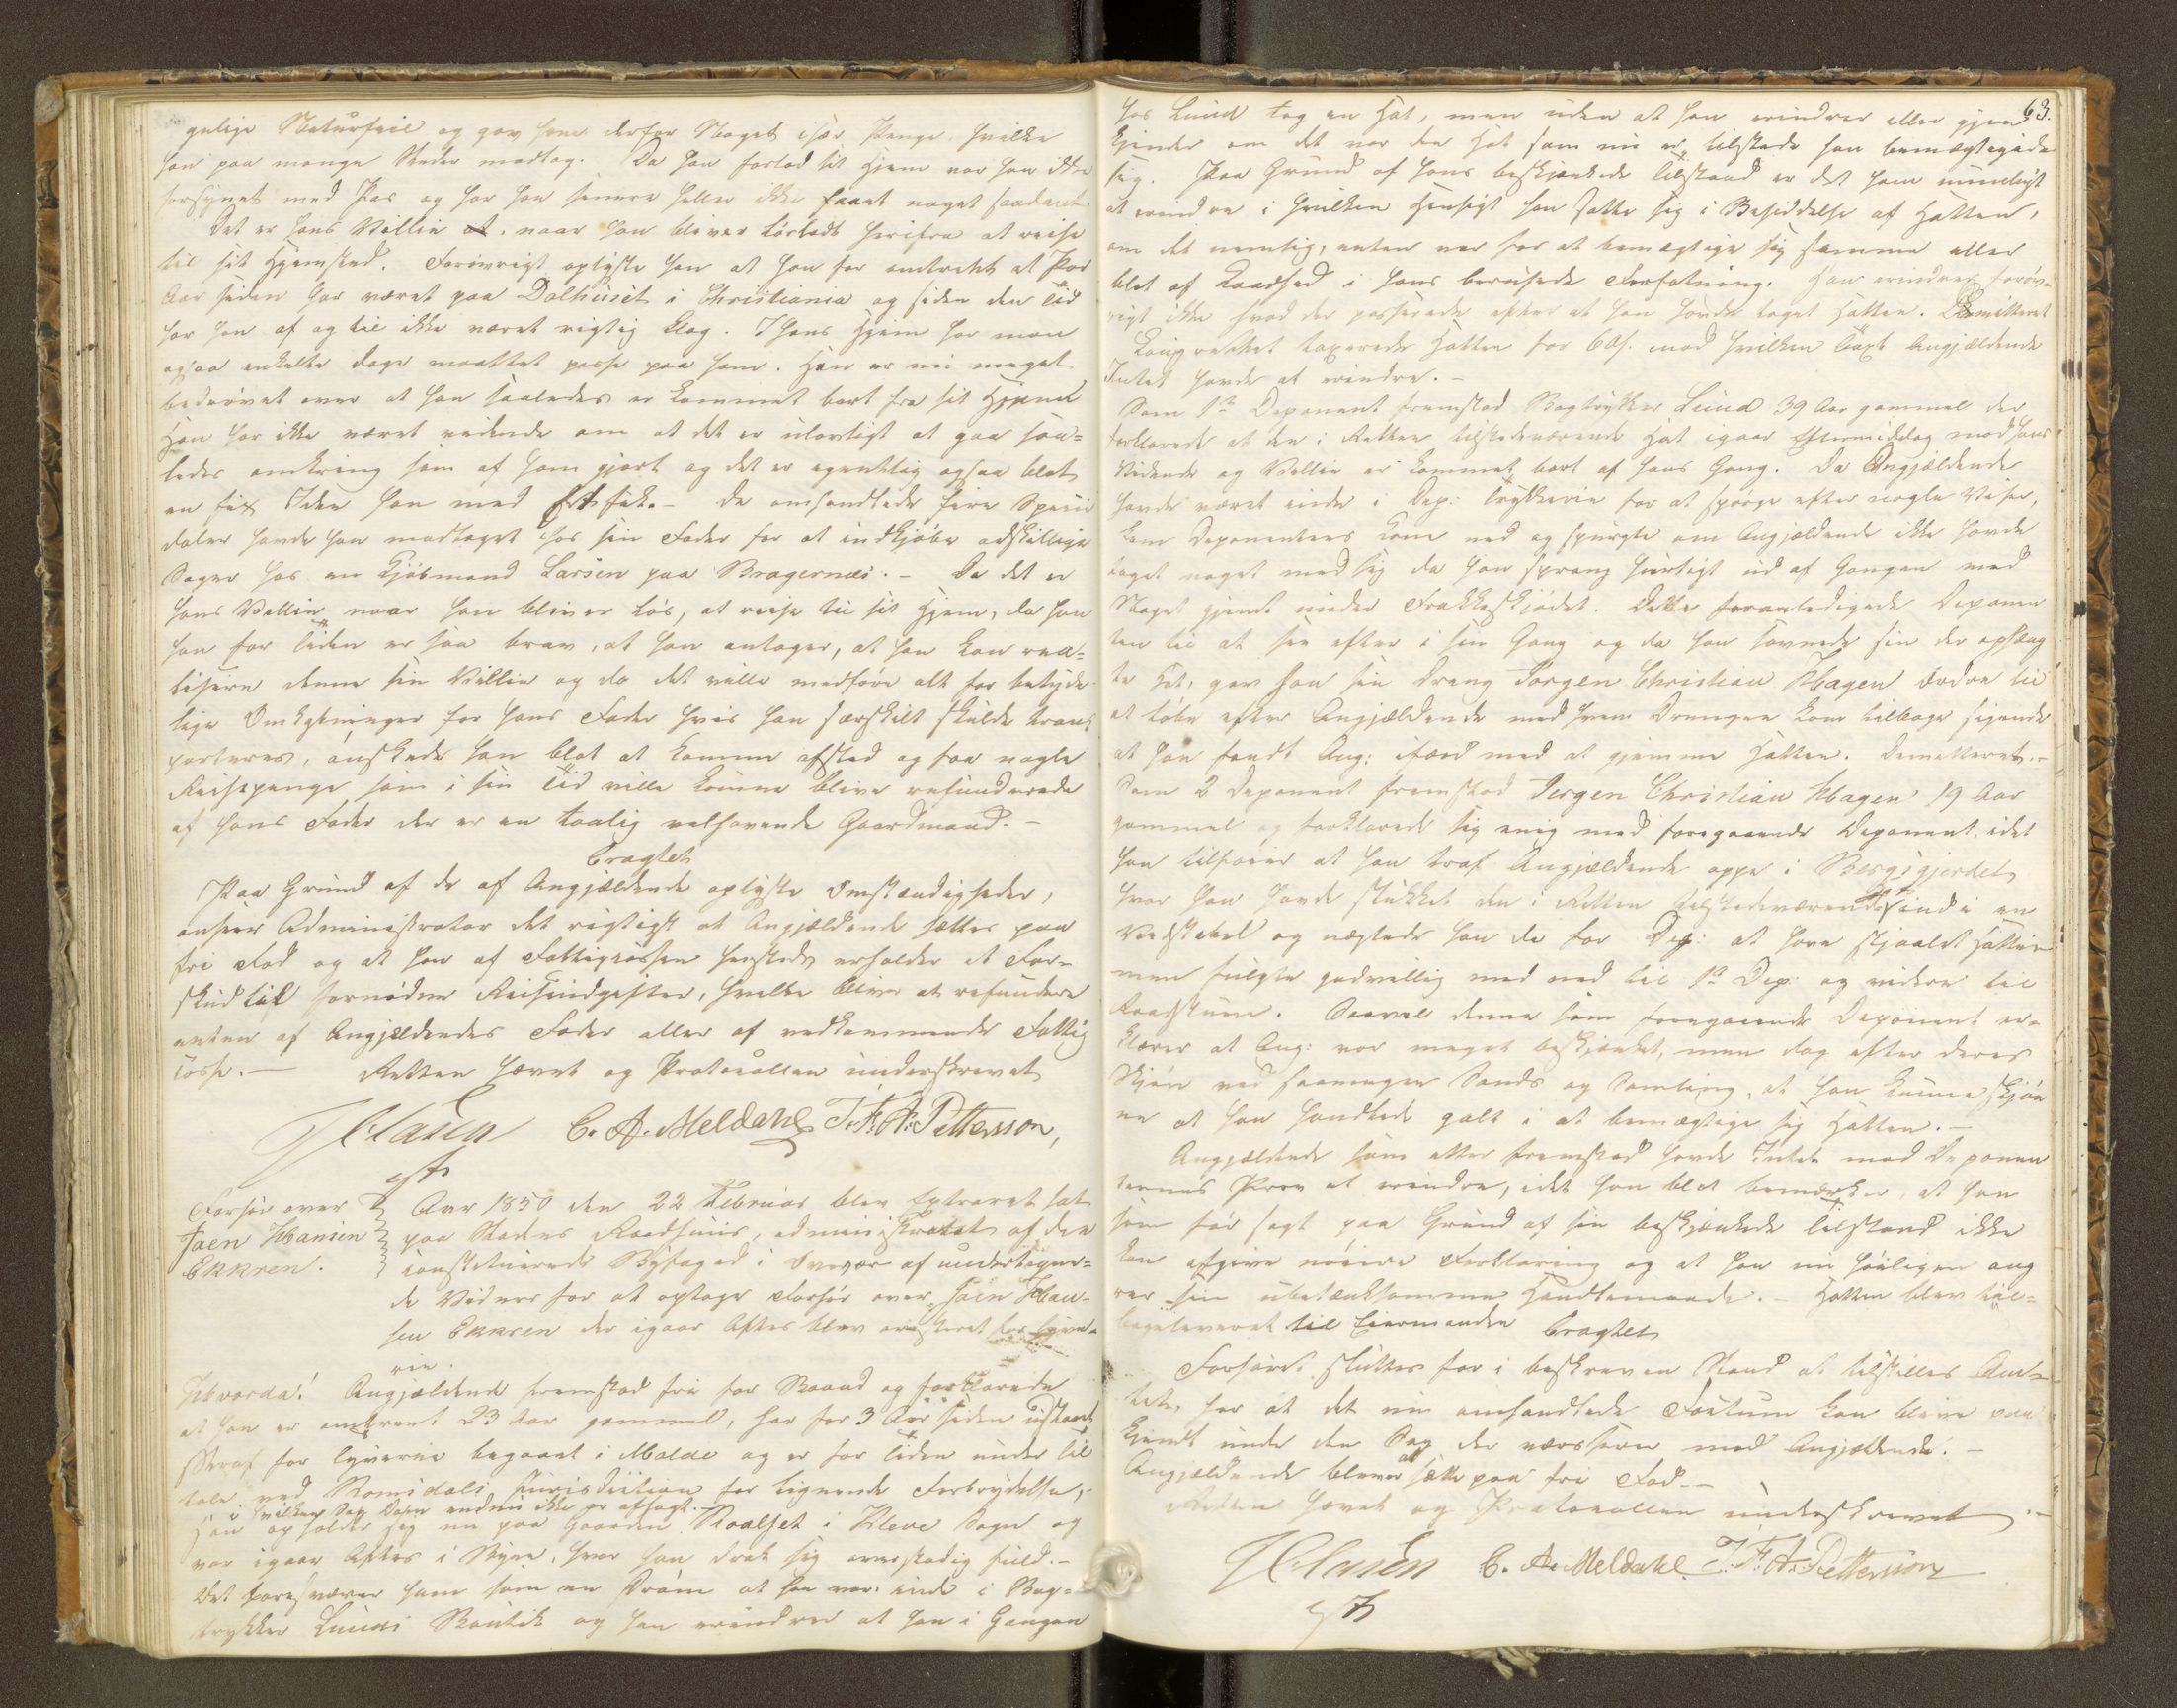 gelige Naturfeil og gav ham derfor Noget især Penge hvilke
han paa mange Steder modtog. Da han forlod sit Hjem var han ikke
forsynet med Pas og har han senere heller ikke faaet noget saadant.
Det er hans Villie at, naar han bliver løsladt herifra at reise
til sit Hjemsted. Forøvrigt oplyste han at han for omtrent et Par
Aar siden har været paa Dolhuset i Christiania og siden den Tid
har han af og til ikke været rigtig klog. I hans Hjem har man
ogsaa enkelte Dage maattet passe paa ham. Han er nu meget
bedrøvet over at han saaledes er kommet bort fra sit Hjem
Han har ikke været vidende om at det er ulovligt at gaa saa=
ledes omkring som af ham gjort og det er egentlig ogsaa blot
en fix Idee han med Et fik. - De omhandlede fire Specie
daler havde han modtaget hos sin Fader for at indkjøbe adskillige
Sager hos en Kjøbmand Larsen paa Bragernæs. - Da det er
hans Villie naar han bliver løs, at reise til sit Hjem, da han
han for Tiden er saa brav, at han antager, at han kan rea=
lisere denne sin Villie og da det ville medføre alt for betyde
lige Omkostninger for hans Fader hvis han særskilt skulde trans
porteres, ønskede han blot at komme afsted og faa nogle
Reisepenge som i sin Tid ville kunne blive refunderede
af hans Fader der er en taalig velhavende Gaardmand. -
Eragtet
Paa Grund af de af Angjældende oplyste Omstændigheder,
anseer Administrator det rigtigst at Angjældende sættes paa
fri Fod og at han af Fattigkassen hersteds erholder et For=
skud til fornødne Reiseudgifter, hvilke bliver at refundere
enten af Angjældendes Fader eller af vedkommende Fattig
casse. - Retten hævet og Protocollen underskrevet
J Clasen C. A. Meldahl T. F. A. Pettersson,
Forhør over
Joen Hansen
Ekkren.
Aar 1850 den 22 Februar blev Extraret sat
paa Stadens Raadhuus, administreret af den
constituerede Byfoged i Overvær af undertegne=
de Vidner for at optage Forhør over Joen Han=
sen Ekkren der igaar Aftes blev arresteret for Tyve=
rie.
Hvorda! Angjældende fremstod fri for Baand og forklarede
at han er omtrent 23 Aar gammel, har for 3 Aar siden udstaaet
Straf for Tyverie begaaet i Molde og er for Tiden under Til
tale ved Romsdals Jurisdiction for lignende Forbrydelse,
i hvilken Sag Dom endnu ikke er afsagt. -
Han opholder sig nu paa Gaarden Roalset i Kleve Sogn og
var igaar Aftes i Byen, hvor han drak sig overstadig fuld. -
Det foresvæver ham som en Drøm at han var inde i Bog=
trykker Lunds Boutik og han erindrer at han i Gangen
63.
hos Lund tog en Hat, men uden at han erindrer eller gjen
kjender om det var den Hat som nu er tilstede han bemægtigede
sig. Paa Grund af hans beskjænkede Tilstand er det ham umuligt
at erindre i hvilken Hensigt han satte sig i Besiddelse af Hatten,
om det nemlig, enten var for at bemægtige sig samme eller
blot af Kaadhed i hans berusede Forfatning. Han erindrer forøv=
rigt ikke hvad der passerede efter at han havde taget Hatten. Demitteret
Laugrettet taxerede Hatten for 60 s. mod hvilken Taxt Angjældende
Intet havde at erindre. -
Som 1ste Deponent fremstod Bogtrykker Lund 39 Aar gammel der
forklarede at den i Retten tilstedeværende Hat igaar Eftermiddag mod hans
Vidende og Villie er kommet bort af hans Gang. Da Angjældende
havde været inde i Dep: Trykkerie for at spørge efter nogle Viser,
kom Deponentens Kone ned og spurgte om Angjældende ikke havde
taget noget med sig da han sprang hurtigt ud af Gangen med
Noget gjemt under Frakkeskjødet. Dette foranledigede Deponen
ten til at see efter i sin Gang og da han savnede sin der ophæng
te Hat, gav han sin Dreng Jørgen Christian Hagen Ordre til
at løbe efter Angjældende med hvem Drengen kom tilbage sigende
at han fandt Ang: ifærd med at gjemme Hatten. Demitteret. -
Som 2 Deponent fremstod Jørgen Christian Hagen 19 Aar
gammel og forklarede sig enig med foregaaende Deponent, idet
han tilføier at han traf Angjældende oppe i Bergsgjerdet
hvor han havde stukket den i Retten tilstedeværende Hat ind i en
Vedstabel og nægtede han da for Dep: at have stjaalet Hatten
men fulgte godvillig med ned til 1ste Dep: og videre til
Raadstuen. Saavel denne som foregaaende Deponent er=
klærer at Ang: var meget beskjænket, men dog efter deres
Skjøn ved saamegen Sands og Samling, at han kunne skjøn
ne at han handlede galt i at bemægtige sig Hatten. -
Angjældende som atter fremstod havde Intet mod Deponen
ternes Prov at erindre, idet han blot bemærker, at han
som før sagt, paa Grund af sin beskjænkede Tilstand ikke
kan afgive nøiere Forklaring og at han nu høiligen ang
rer sin ubetænksomme Handlemaade. - Hatten blev til=
bageleveret til Eiermanden Eragtet
Forhøret sluttes for i beskreven Stand at tilstilles Am=
tet, for at det nu omhandlede Factum kan blive paa
kjendt under den Sag der verserer mod Angjældende. -
Angjældende bliver at sætte paa fri Fod. -
Retten hævet og Protocollen underskrevet. -
J Clasen C. A. Meldahl T. F. A. Pettersson